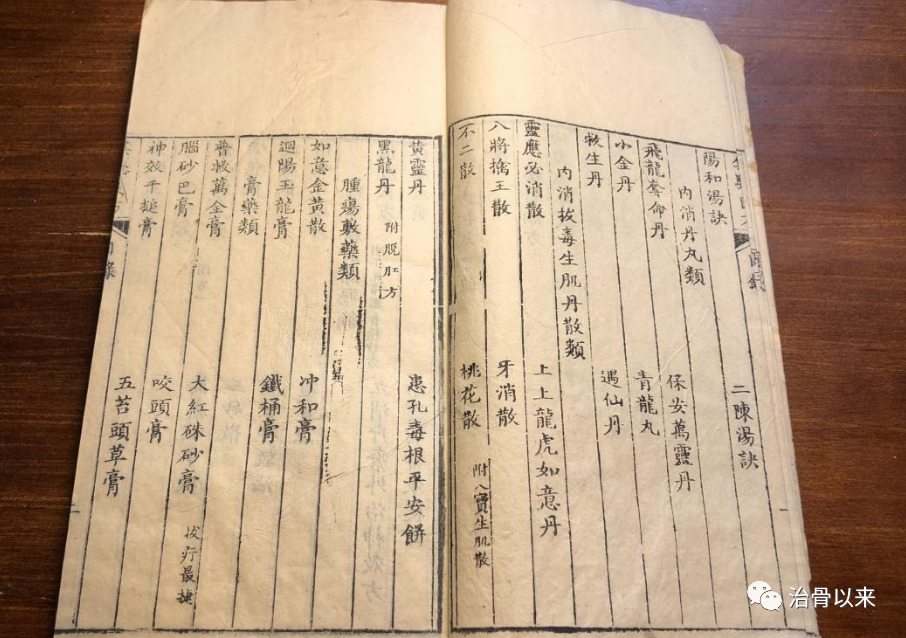 目錄
陽和湯訣 二陳湯訣
內消丹丸類
飛龍奪命丹 保安萬靈丹
小金丹 青龍丸
救生丹 遇仙丹
內消拔毒生肌丹散類
靈應必消散 上上龍虎如意丹
八將擒王散 牙消散
不二散 桃花散 附八寶生肌散
黃靈丹 患孔毒根平安餅
黑龍丹 附脫肛方
腫瘍敷藥類
如意金黃散 冲和膏
迴陽玉龍膏 鐵桶膏
膏藥類
普救萬全膏 大紅硃砂膏 拔疔最捷
腦砂巴膏 咬頭膏
神效千搥膏 五苔頭草膏
一
治骨以来